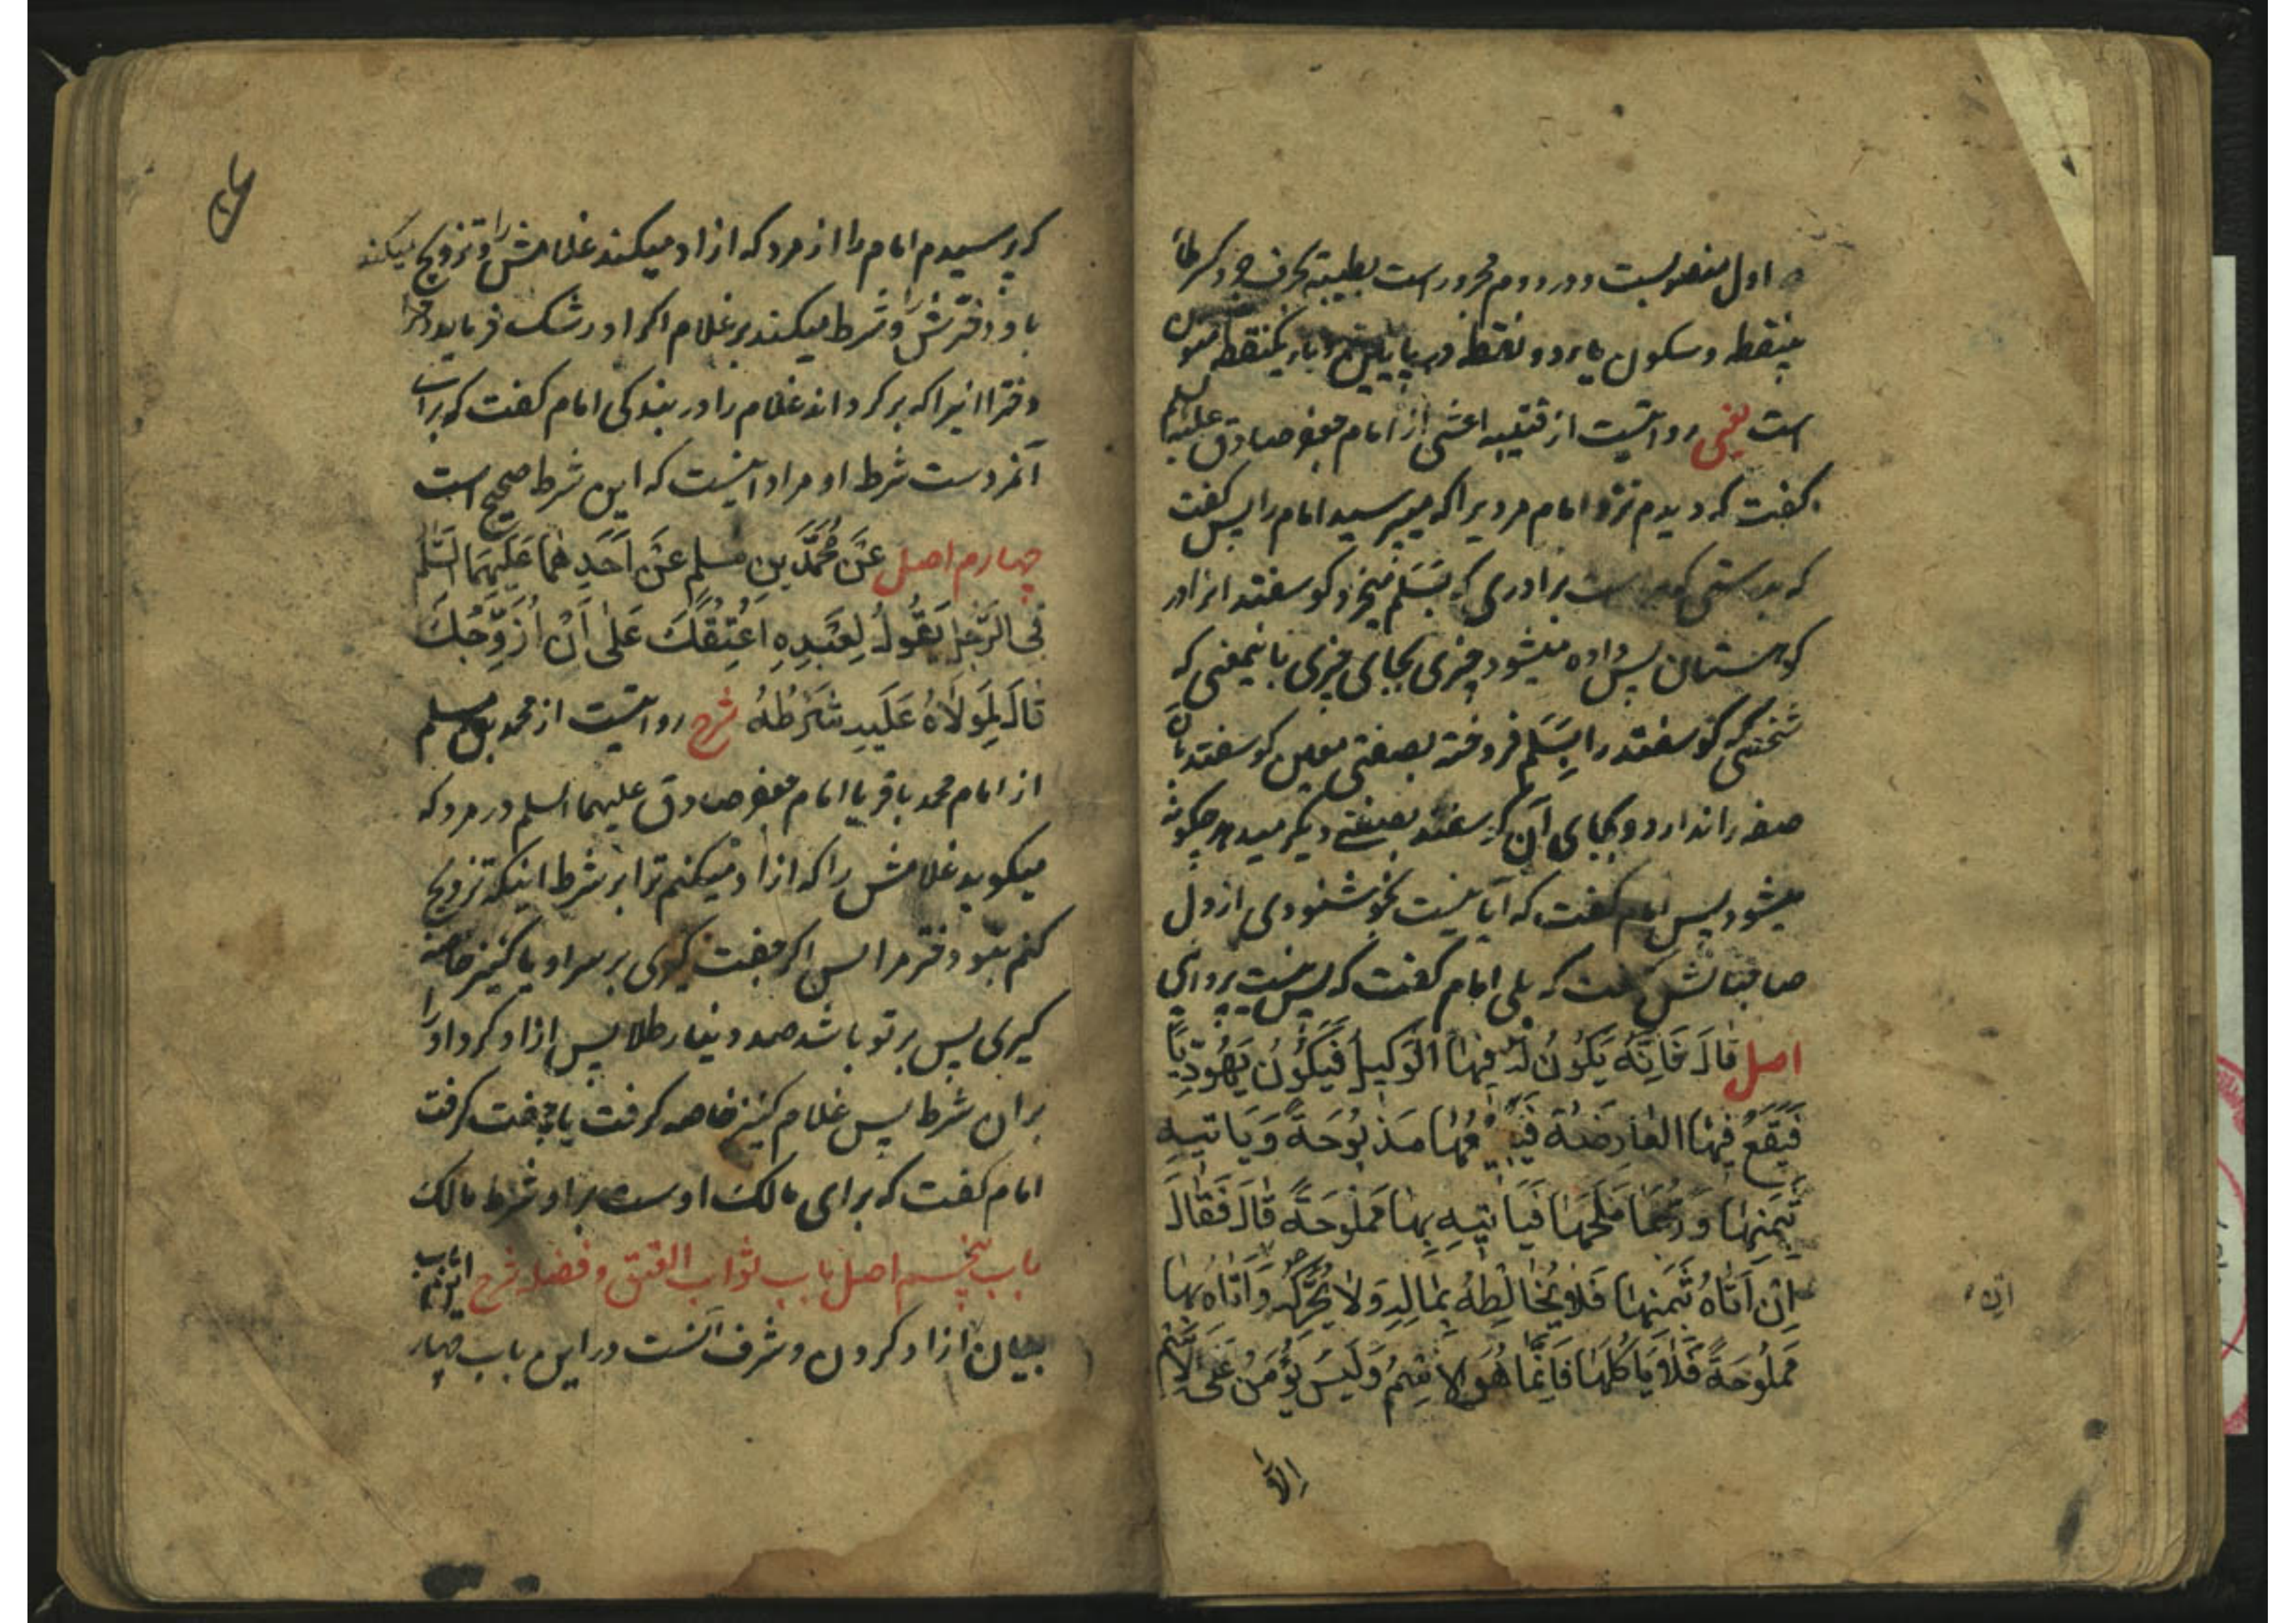 اول منصوبست و در دووم مجرور است بطیبة بحرف جر و کسر طاء
بینقطه و سکون یاء دو نقطه در پایین و باء یکنقطه
است یعنی روایتست از قتیبه اعشی از امام جعفر صادق علیه السلم
کفت که دیدم نزد امام مردیرا که میپرسید امام را پس کفت
که بدرستی که برادری که بسلم میخرد کوسفند انرا در
کوهستان پس داده میشود چیزی بجای چیزی باینمعنی که
شخصی که کوسفند را بسلم فروخته بصفتی معین کوسفند بان
صفه را ندارد و بجای آن کوسفند بصفتی دیکر میدهد چکونه
میشود پس امام کفت که آیا نیست بخوشنودی از دل
صاحبانش کفت که بلی امام کفت که پس نیست پروای
اصل قَالَ فَاِنَّهُ یَکُونُ لَهُ فِیهَا الوَکِیلُ فَیَکُونُ یَهُودِیًّا
فَیَقَعُ فِیهَا العَارِضَةُ فَیَبِیعُهَا مَذبُوحَةً وَیَاتیهِ
بِثَمَنِهَا وَرُبَّمَا مَلَّحَهَا فَیَاتیهِ بِهَا مَملُوحَةً قَالَ فَقَالَ
اِن اَتَاهُ بِثَمَنِهَا فَلَا یُخَالِطهُ بِمَالِهِ وَلَا یُحَرِّکهُ وَ اَتَاهُ بِهَا
مَملُوحَةً فَلَا یَاکُلهَا فَاِنَّمَا هُوَ الِاسمُ وَلَیسَ یُؤمَنُ عَلَی الِاسمِ
اِلَّا
که پرسیدم امام را از مرد که ازاد میکند غلامش را و تزویج میکند
باو دخترش را و شرط میکند بر غلام اکر او در رشک فرماید دختر
دختر انرا که بر کرداند غلام را در بندکی امام کفت که برای
آنمردست شرط او مراد اینست که این شرط صحیح است
چهارم اصل عَن مُحَمَّدِ بنِ مسلِمٍ عَن اَحَدِهِمَا عَلَیهِمَا السَّلَم
فِی الرَّجُلِ یَقُولُ لِعَبدِهِ اُعتِقُکَ عَلَی اَن اُزَوِّجَکَ
قَالَ لِمَولَاهُ عَلَیهِ شَرطُهُ شرح روایتست از محمد بن مسلم
از امام محمد باقر یا امام جعفر صادق علیهما السلم در مرد که
میکوید غلامش را که ازاد میکنم ترا بر شرط اینکه تزویج
کنم بتو دختر مرا پس اکر جفت کیری بر سر او یا کنیز خاصه
کیری پس بر تو باشد صد دینار طلا پس ازاد کرد او را
بران شرط پس غلام کنیز خاصه کرفت یا جفت کرفت
امام کفت که برای مالک اوست بر او شرط مالک
باب پنجم اصل باب ثواب العتق و فضله شرح این باب
بیان ازاد کردن و شرف آنست در این باب چهار